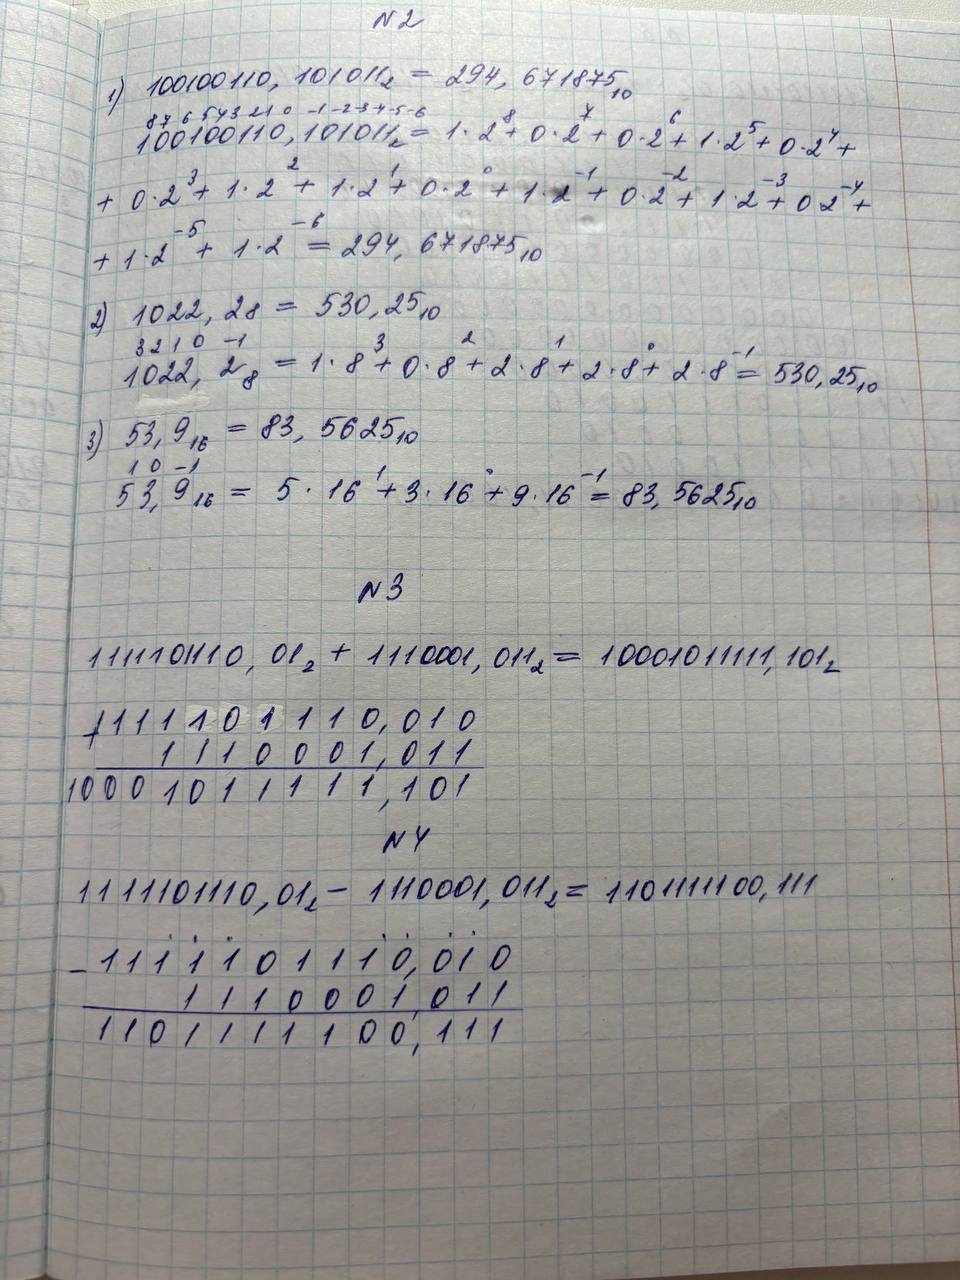 N2
1) 100100110, 101011₂ = 294, 671875₁₀
8 7 6 5 4 3 2 1 0 -1 -2 -3 -4 -5 -6
100100110, 101011₂ = 1·2⁸ + 0·2⁷ + 0·2⁶ + 1·2⁵ + 0·2⁴ +
+ 0·2³ + 1·2² + 1·2¹ + 0·2⁰ + 1·2⁻¹ + 0·2⁻² + 1·2⁻³ + 0 2⁻⁴ +
+ 1·2⁻⁵ + 1·2⁻⁶ = 294, 671875₁₀
2) 1022, 2₈ = 530,25₁₀
3 2 1 0 -1
1022, 2₈ = 1·8³ + 0·8² + 2·8¹ + 2·8⁰ + 2·8⁻¹ = 530,25₁₀
3) 53,9₁₆ = 83, 5625₁₀
1 0 -1
53,9₁₆ = 5·16¹ + 3·16⁰ + 9·16⁻¹ = 83,5625₁₀
N3
1111101110, 01₂ + 1110001, 011₂ = 10001011111,101₂
+ 1111101110,010
1110001,011
10001011111,101
N4
1111101110,01₂ - 1110001,011₂ = 1101111100,111
- 1111101110,010
1110001,011
1101111100,111